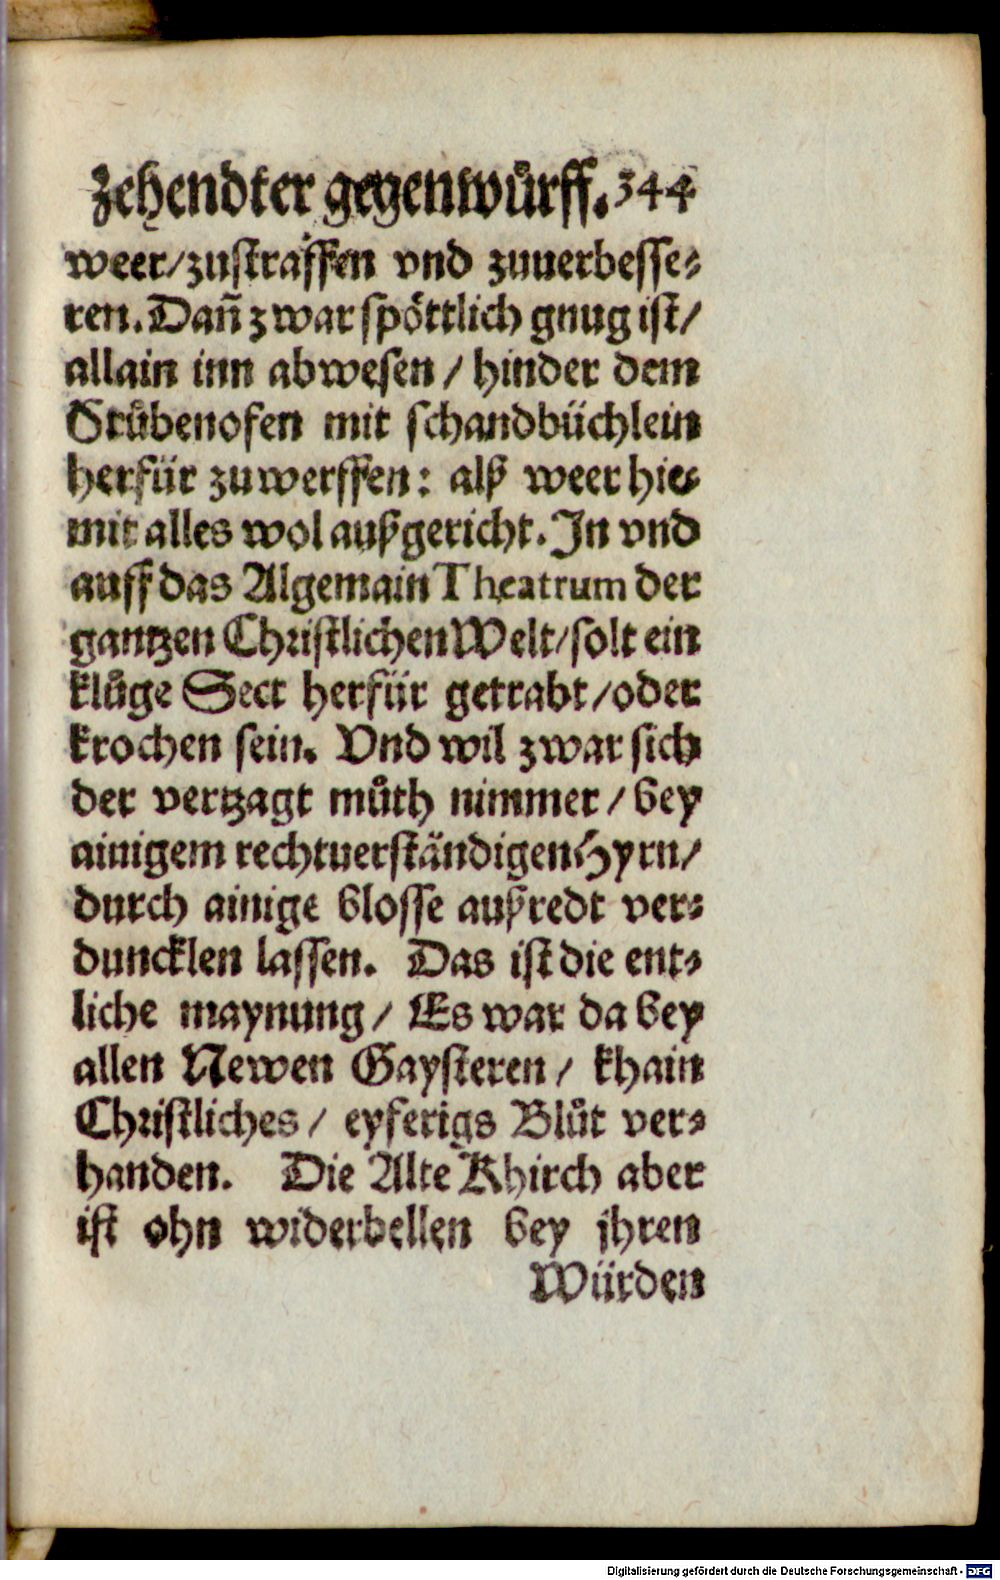 Zehendter gegenwürff. 344
weer/zustraffen vnd zuuerbesse-
ren. Dañ zwar spöttlich gnug ist/
allain inn abwesen / hinder dem
Stůbenofen mit schandbüchlein
herfür zuwerffen: alß weer hie-
mit alles wol außgericht. In vnd
auff das Algemain Theatrum der
gantzen Christlichen Welt/solt ein
klůge Sect herfür getrabt/oder
krochen sein. Vnd wil zwar sich
der vertzagt můth nimmer / bey
ainigem rechtuerständigen Hyrn/
durch ainige blosse außredt ver-
duncklen lassen. Das ist die ent-
liche maynung / Es war da bey
allen Newen Gaysteren / khain
Christliches / eyferigs Blůt ver-
handen. Die Alte Khirch aber
ist ohn widerbellen bey jhren
Würden
Digitalisierung gefördert durch die Deutsche Forschungsgemeinschaft - DFG